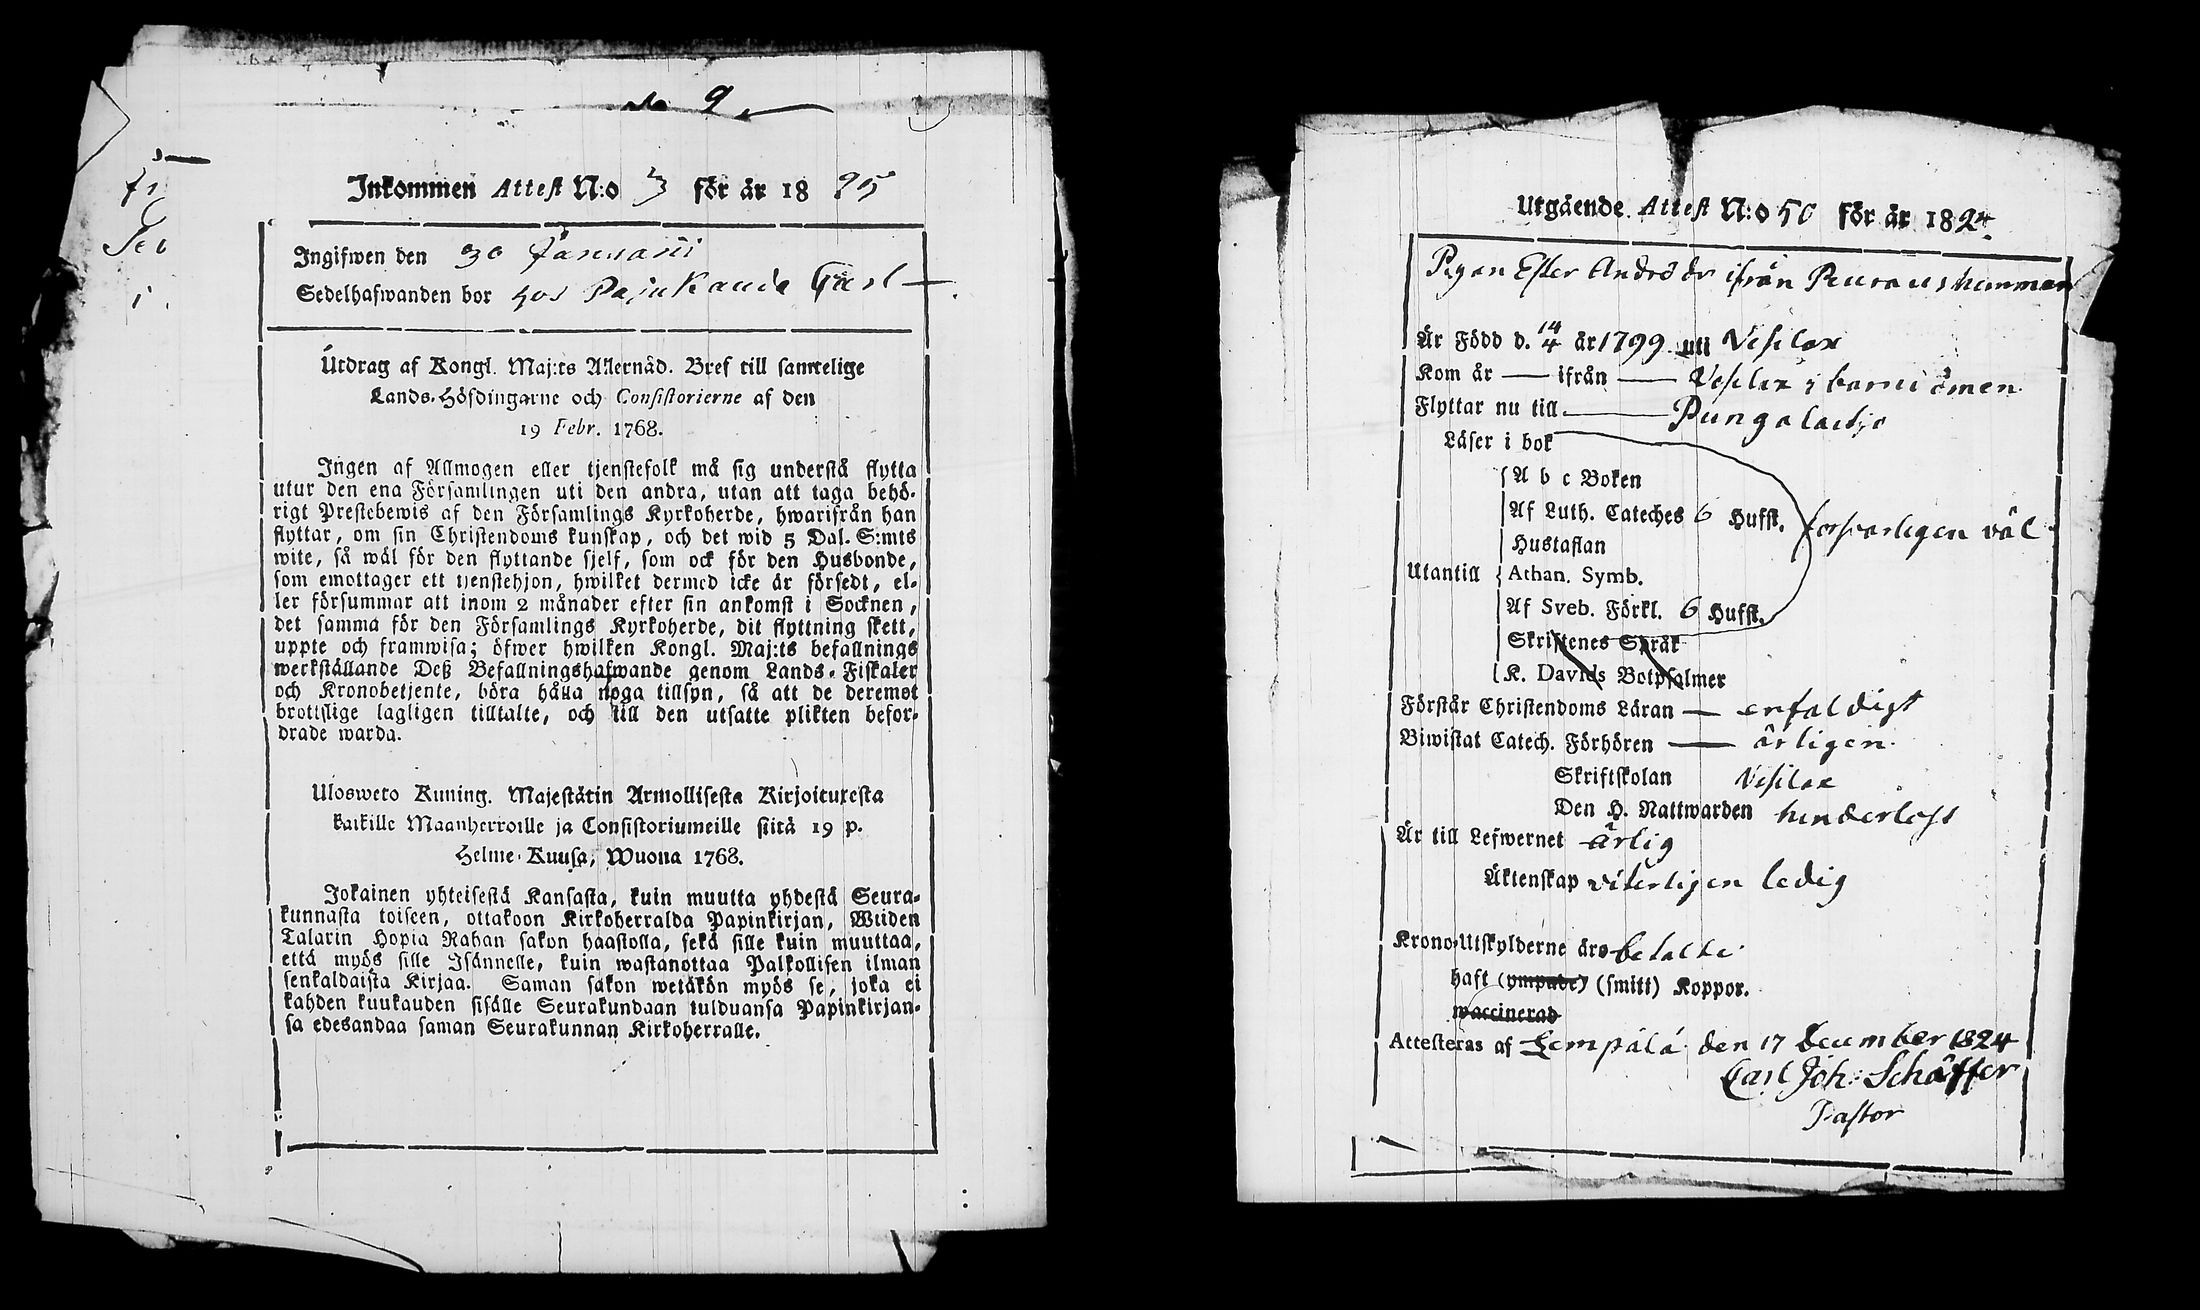 No 9
Inkommen Attest N:o 3 för år 18 25
Ingifwen den 30 Januarii
Sedelhafwanden bor hos Pajukanda Carl
Utdrag af Kongl. Maj:ts Allernåd. Bref till samtelige
Lands-Höfdingarne och Consistorierne af den
19 Febr. 1768.
Ingen af Allmogen eller tjenstefolk må sig understå flytta
utur den ena Församlingen uti den andra, utan att taga behö-
rigt Prestebewis af den Församlings Kyrkoherde, hwarifrån han
flyttar, om sin Christendoms kunskap, och det wid 5 Dal. S:mts
wite, så wäl för den flyttande sjelf, som ock för den Husbonde,
som emottager ett tjenstehjon, hwilket dermed icke är försedt, el-
ler försummar att inom 2 månader efter sin ankomst i Socknen,
det samma för den Församlings Kyrkoherde, dit flyttning skett,
uppte och framwisa; öfwer hwilken Kongl. Maj:ts befallnings
werkställande Deß Befallningshafwande genom Lands-Fiskaler
och Kronobetjente, böra hålla noga tillsyn, så att de deremot
brottslige lagligen tilltalte, och till den utsatte plikten befor-
drade warda.
Ulosweto Kuning. Majestätin Armollisesta Kirjoituxesta
kaikille Maanherroille ja Consistoriumeille siitä 19 p.
Helme-Kuusa, Wuona 1768.
Jokainen yhteisestä Kansasta, kuin muutta yhdestä Seura-
kunnasta toiseen, ottakoon Kirkoherralda Papinkirjan, Wiiden
Talarin Hopia Rahan sakon haastolla, sekä sille kuin muuttaa,
että myös sille Isännelle, kuin wastanottaa Palkollisen ilman
senkaldaista Kirjaa. Saman sakon wetäkön myös se, joka ei
kahden kuukauden sisälle Seurakundaan tulduansa Papinkirjan-
sa edesandaa saman Seurakunnan Kirkoherralle.
Utgående Attest N:o 50 för år 1824.
Pigan Ester Andersdr ifrån Peuraus hemman
Är Född d. 14/4 år 1799 uti Vesilax
Kom år — ifrån — Vesilax i barndomen
Flyttar nu till — Pungalaitjo
Läser i bok
A b c Boken
Af Luth. Cateches 6 Hufst. försvarligen väl
Hustaflan
Utantill Athan. Symb.
Af Sveb. Förkl. 6 Hufst.
Skriftenes Språk
K. Davids Botpsalmer
Förstår Christendoms Läran — enfaldigt
Biwistat Catech. Förhören — årligen
Skriftskolan Vesilax
Den H. Nattwarden hinderlöst
Är till Lefwernet ärlig
Äktenskap viterligen ledig
Krono-Utskylderne äro betalte
haft (ympade) (smitt) Koppor.
waccinerad
Attesteras af Lempälä den 17 December 1824
Carl Joh: Schäffer
Pastor